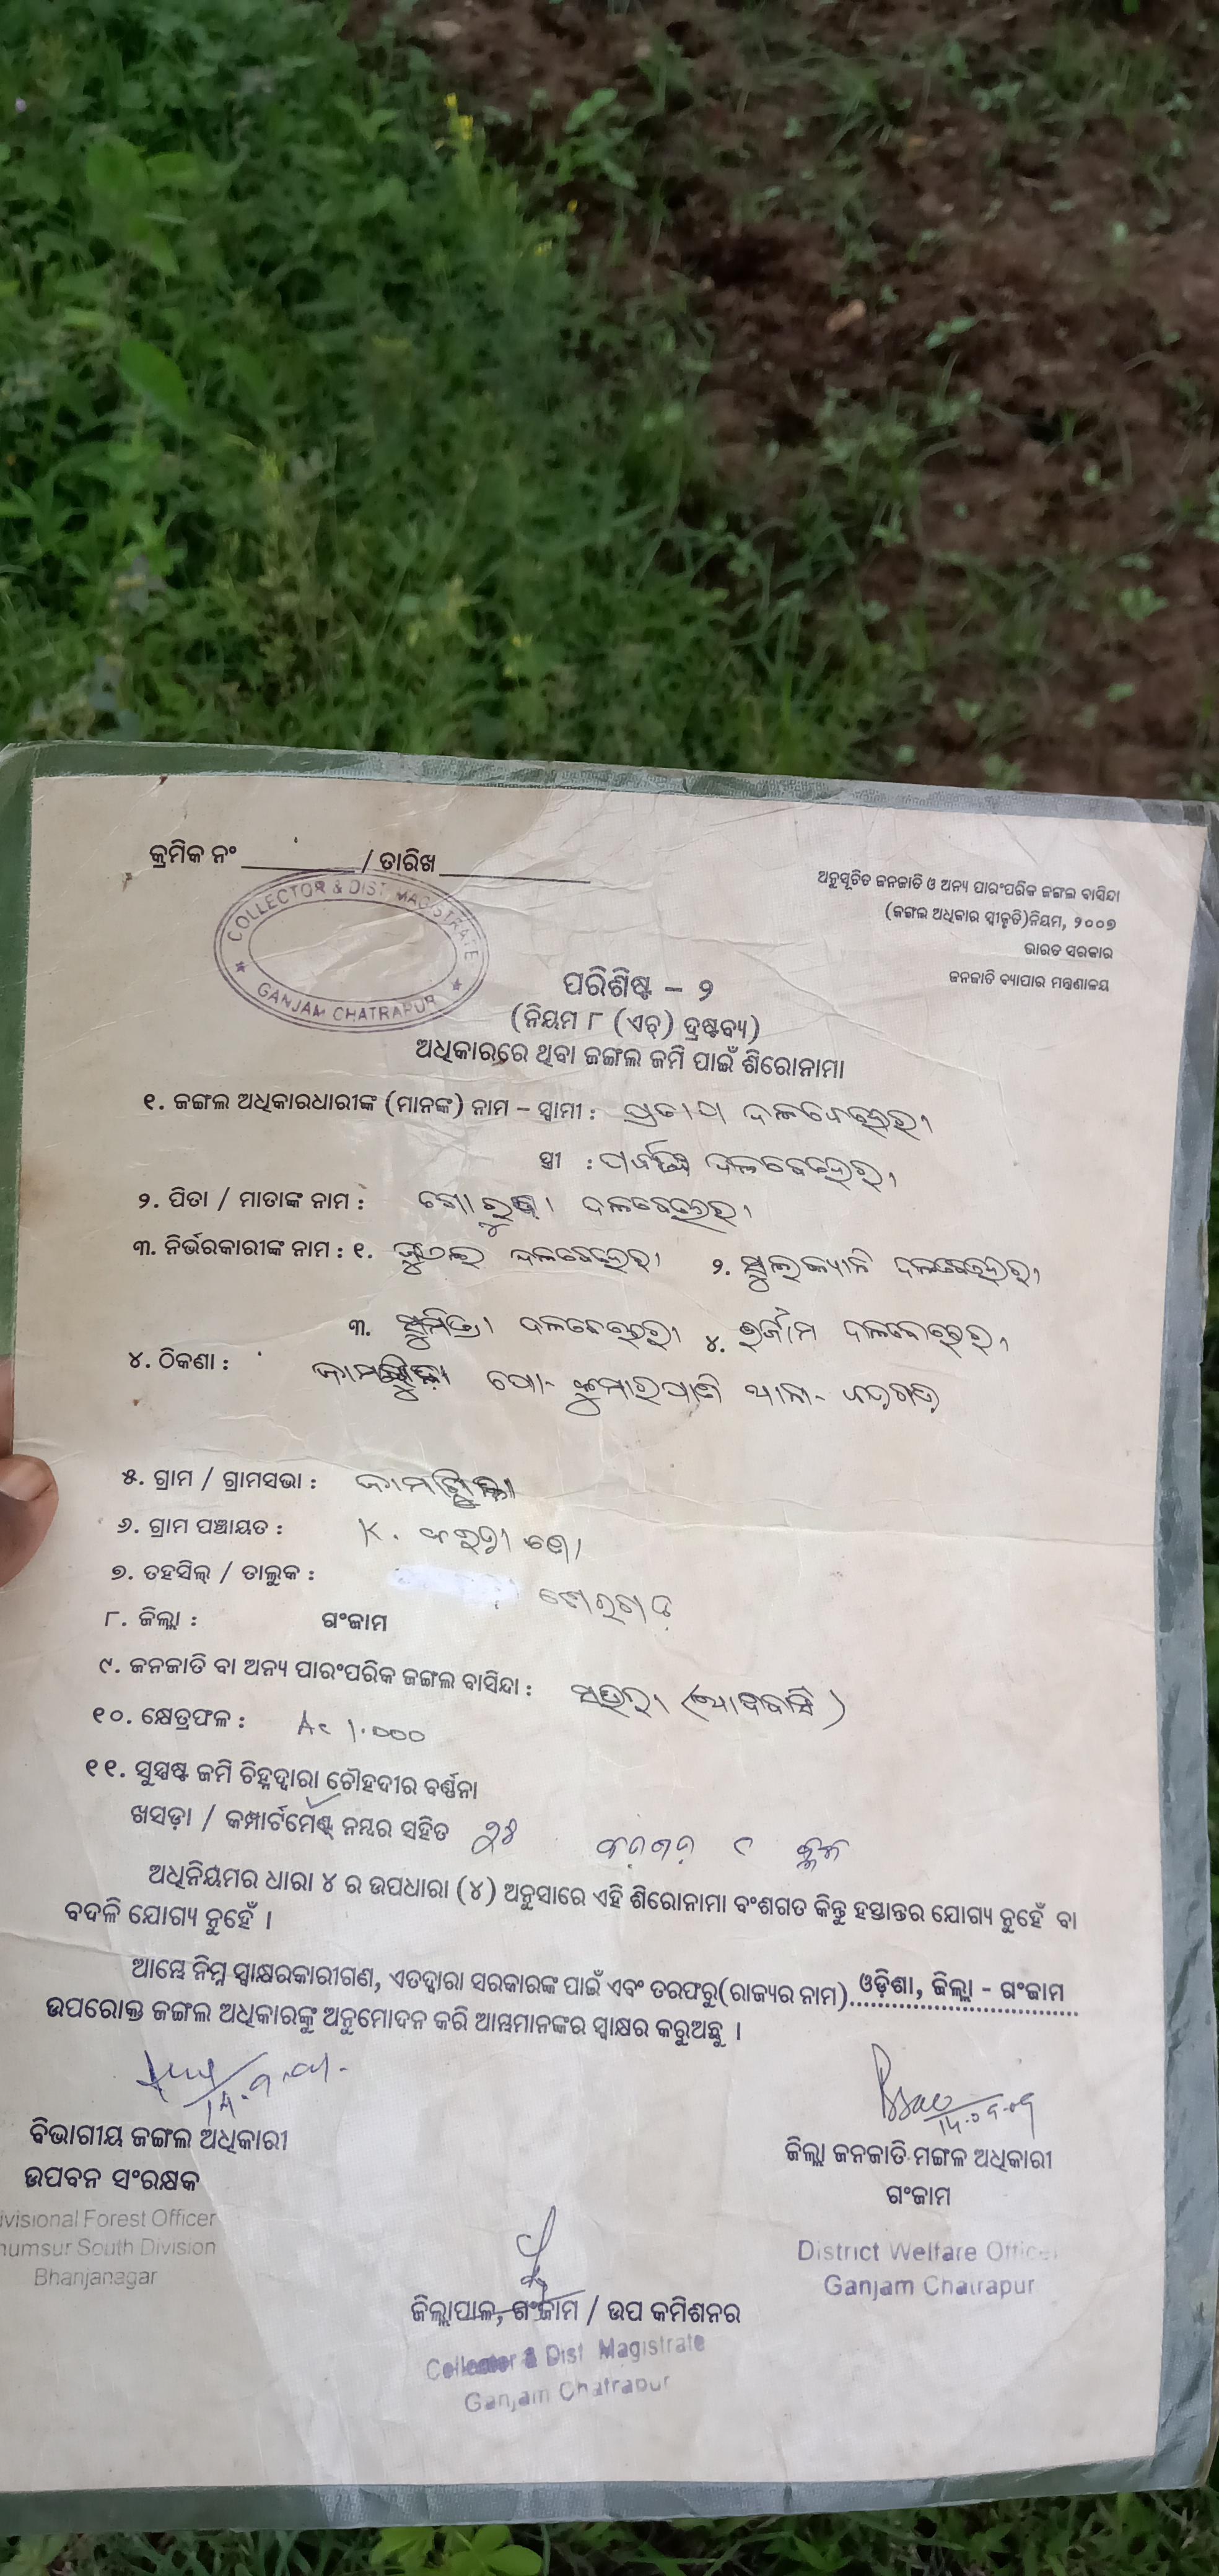 କ୍ରମିକ ନଂ / ତାରିଖ
COLLECTOR & DIST. MAGISTRATE
GANJAM CHATRAPUR
ଅନୁସୂଚିତ ଜନଜାତି ଓ ଅନ୍ୟ ପାରଂପରିକ ଜଙ୍ଗଲ ବାସିନ୍ଦା
(ଜଙ୍ଗଲ ଅଧିକାର ସ୍ୱୀକୃତି)ନିୟମ, ୨୦୦୭
ଭାରତ ସରକାର
ଜନଜାତି ବ୍ୟାପାର ମନ୍ତ୍ରଣାଳୟ
ପରିଶିଷ୍ଟ – ୨
(ନିୟମ ୮ (ଏଚ୍) ଦ୍ରଷ୍ଟବ୍ୟ)
ଅଧିକାରରେ ଥିବା ଜଙ୍ଗଲ ଜମି ପାଇଁ ଶିରୋନାମା
୧. ଜଙ୍ଗଲ ଅଧିକାରଧାରୀଙ୍କ (ମାନଙ୍କ) ନାମ – ସ୍ୱାମୀ : ପ୍ରତାପ ଦଳବେହେରା
ସ୍ତ୍ରୀ : ଦଳବେହେରା
୨. ପିତା / ମାତାଙ୍କ ନାମ : ଦଳବେହେରା
୩. ନିର୍ଭରକାରୀଙ୍କ ନାମ : ୧. ଦଳବେହେରା ୨. ଦଳବେହେରା
୩. ସୁମିତ୍ରା ଦଳବେହେରା ୪. ଦଳବେହେରା
୪. ଠିକଣା : ପୋ- କୁମାରପାଣି ଥାନା-
୫. ଗ୍ରାମ / ଗ୍ରାମସଭା :
୬. ଗ୍ରାମ ପଞ୍ଚାୟତ : K.
୭. ତହସିଲ୍ / ତାଲୁକ :
୮. ଜିଲ୍ଲା : ଗଂଜାମ
୯. ଜନଜାତି ବା ଅନ୍ୟ ପାରଂପରିକ ଜଙ୍ଗଲ ବାସିନ୍ଦା : ସଉରା (ଆଦିବାସି)
୧୦. କ୍ଷେତ୍ରଫଳ : Ac ୧.୦୦୦
୧୧. ସୁସ୍ପଷ୍ଟ ଜମି ଚିହ୍ନଦ୍ୱାରା ଚୌହଦୀର ବର୍ଣ୍ଣନା
ଖସଡ଼ା / କମ୍ପାର୍ଟମେଣ୍ଟ ନମ୍ୱର ସହିତ
ଅଧିନିୟମର ଧାରା ୪ ର ଉପଧାରା (୪) ଅନୁସାରେ ଏହି ଶିରୋନାମା ବଂଶଗତ କିନ୍ତୁ ହସ୍ତାନ୍ତର ଯୋଗ୍ୟ ନୁହେଁ ବା
ବଦଳି ଯୋଗ୍ୟ ନୁହେଁ ।
ଆମ୍ଭେ ନିମ୍ନ ସ୍ୱାକ୍ଷରକାରୀଗଣ, ଏତଦ୍ୱାରା ସରକାରଙ୍କ ପାଇଁ ଏବଂ ତରଫରୁ(ରାଜ୍ୟର ନାମ) ଓଡ଼ିଶା, ଜିଲ୍ଲା - ଗଂଜାମ
ଉପରୋକ୍ତ ଜଙ୍ଗଲ ଅଧିକାରଙ୍କୁ ଅନୁମୋଦନ କରି ଆମ୍ଭମାନଙ୍କର ସ୍ୱାକ୍ଷର କରୁଅଛୁ ।
ବିଭାଗୀୟ ଜଙ୍ଗଲ ଅଧିକାରୀ
ଉପବନ ସଂରକ୍ଷକ
ivisional Forest Officer
umsur South Division
Bhanjanagar
ଜିଲ୍ଲା ଜନଜାତି ମଙ୍ଗଳ ଅଧିକାରୀ
ଗଂଜାମ
District Welfare Officer
Ganjam Chatrapur
ଜିଲ୍ଲାପାଳ, ଗଂଜାମ / ଉପ କମିଶନର
Collector & Dist. Magistrate
Ganjam Chatrapur